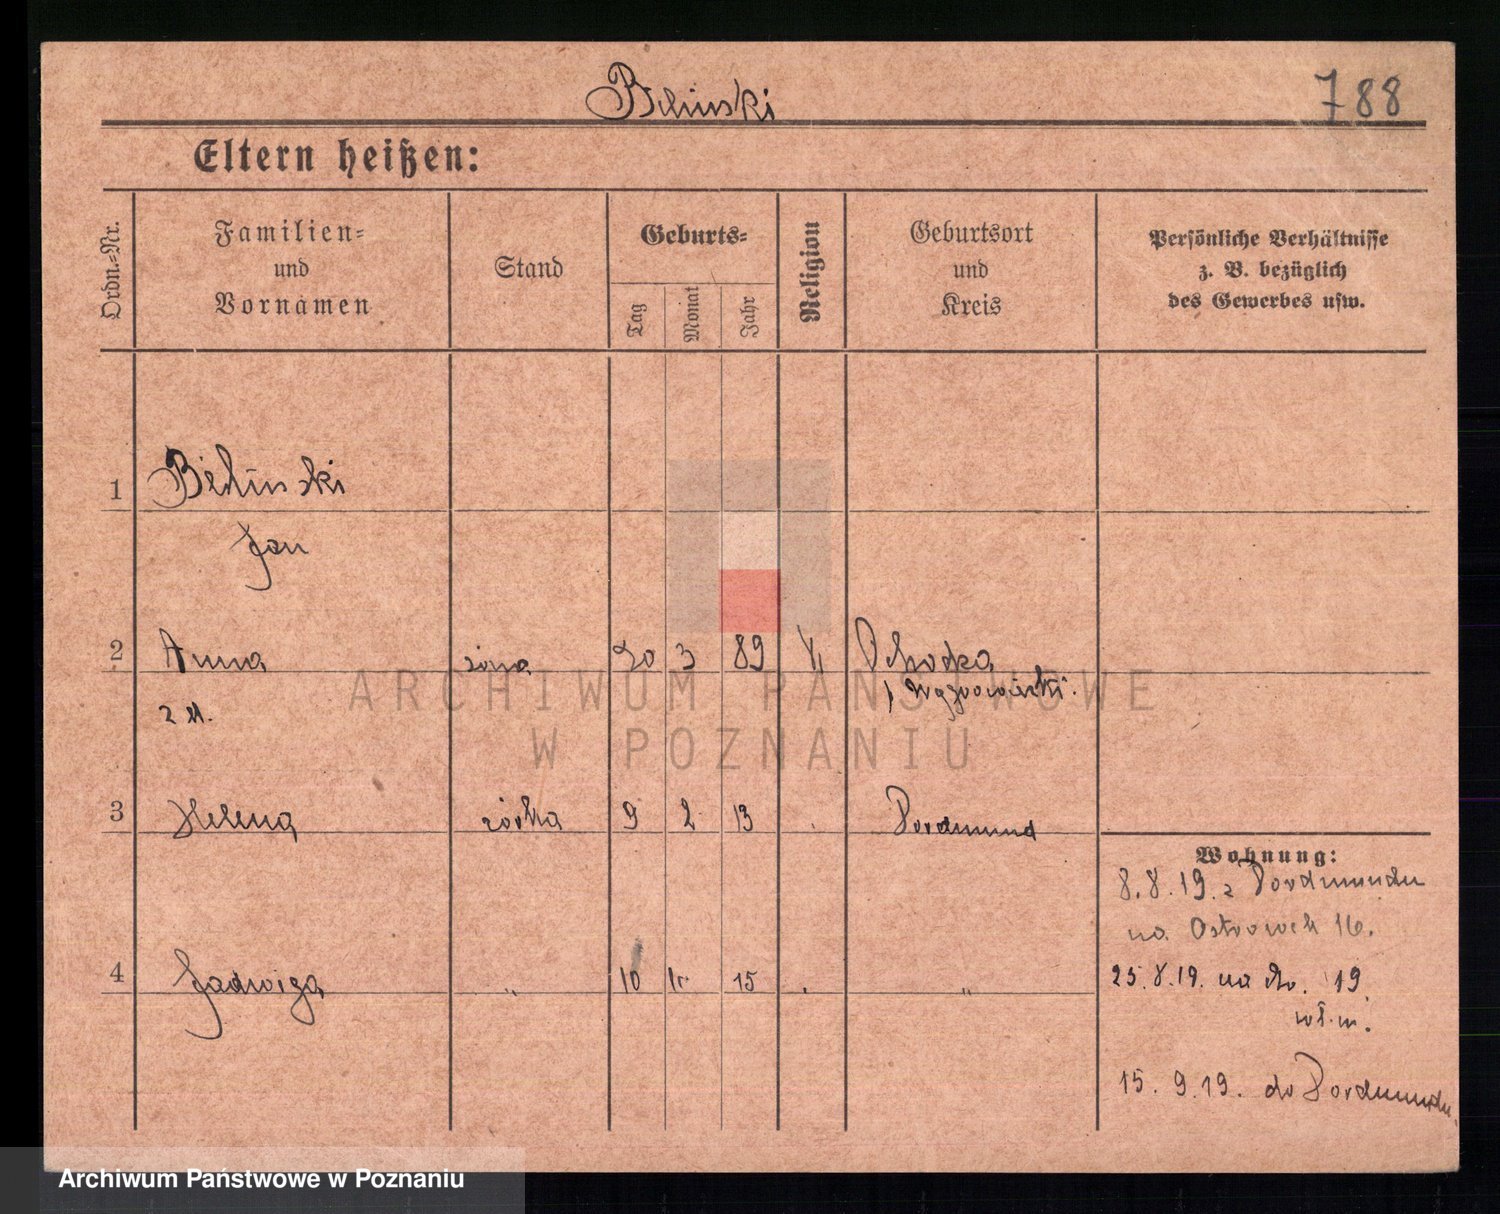 Bieliński 788
Eltern heißen:
Ordn.-Nr.
Familien-
und
Vornamen
Stand
Geburts-
Tag
Monat
Jahr
Religion
Geburtsort
und
Kreis
Persönliche Verhältnisse
z. B. bezüglich
des Gewerbes usw.
1 Bieliński
Jan
2 Anna żona 20 3 89 Ochodza
z d.
p. Wągrowiecki
3 Helena córka 9 2 13 Dordmund
Wohnung:
8.8.19. z Dordmundu
na Ostrowek 16.
4 Jadwiga " 10 15 "
25.8.19. na 19
15. 9.19. do Dordmundu
ARCHIWUM PAŃSTWOWE
W POZNANIU
Archiwum Państwowe w Poznaniu